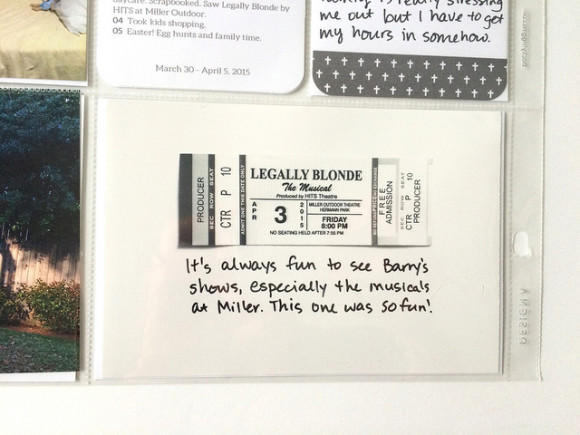 Scrapbooked. Saw Legally Blonde by
HITS at Miller Outdoor.
04 Took kids shopping.
05 Easter! Egg hunts and family time.
March 30 - April 5, 2015
is really stressing
me out but I have to get
my hours in somehow.
PRODUCER
SEC ROW SEAT
CTR P 10
ADMIT ONE THIS DATE ONLY
LEGALLY BLONDE
The Musical
Produced by HITS Theatre
APR
3
2015
MILLER OUTDOOR THEATRE
HERMANN PARK
FRIDAY
8:00 PM
NO SEATING HELD AFTER 7:55 PM
FREE
ADMISSION
SEC ROW SEAT
CTR P 10
PRODUCER
It's always fun to see Barry's
shows, especially the musicals
at Miller. This one was so fun!
DESIGN A